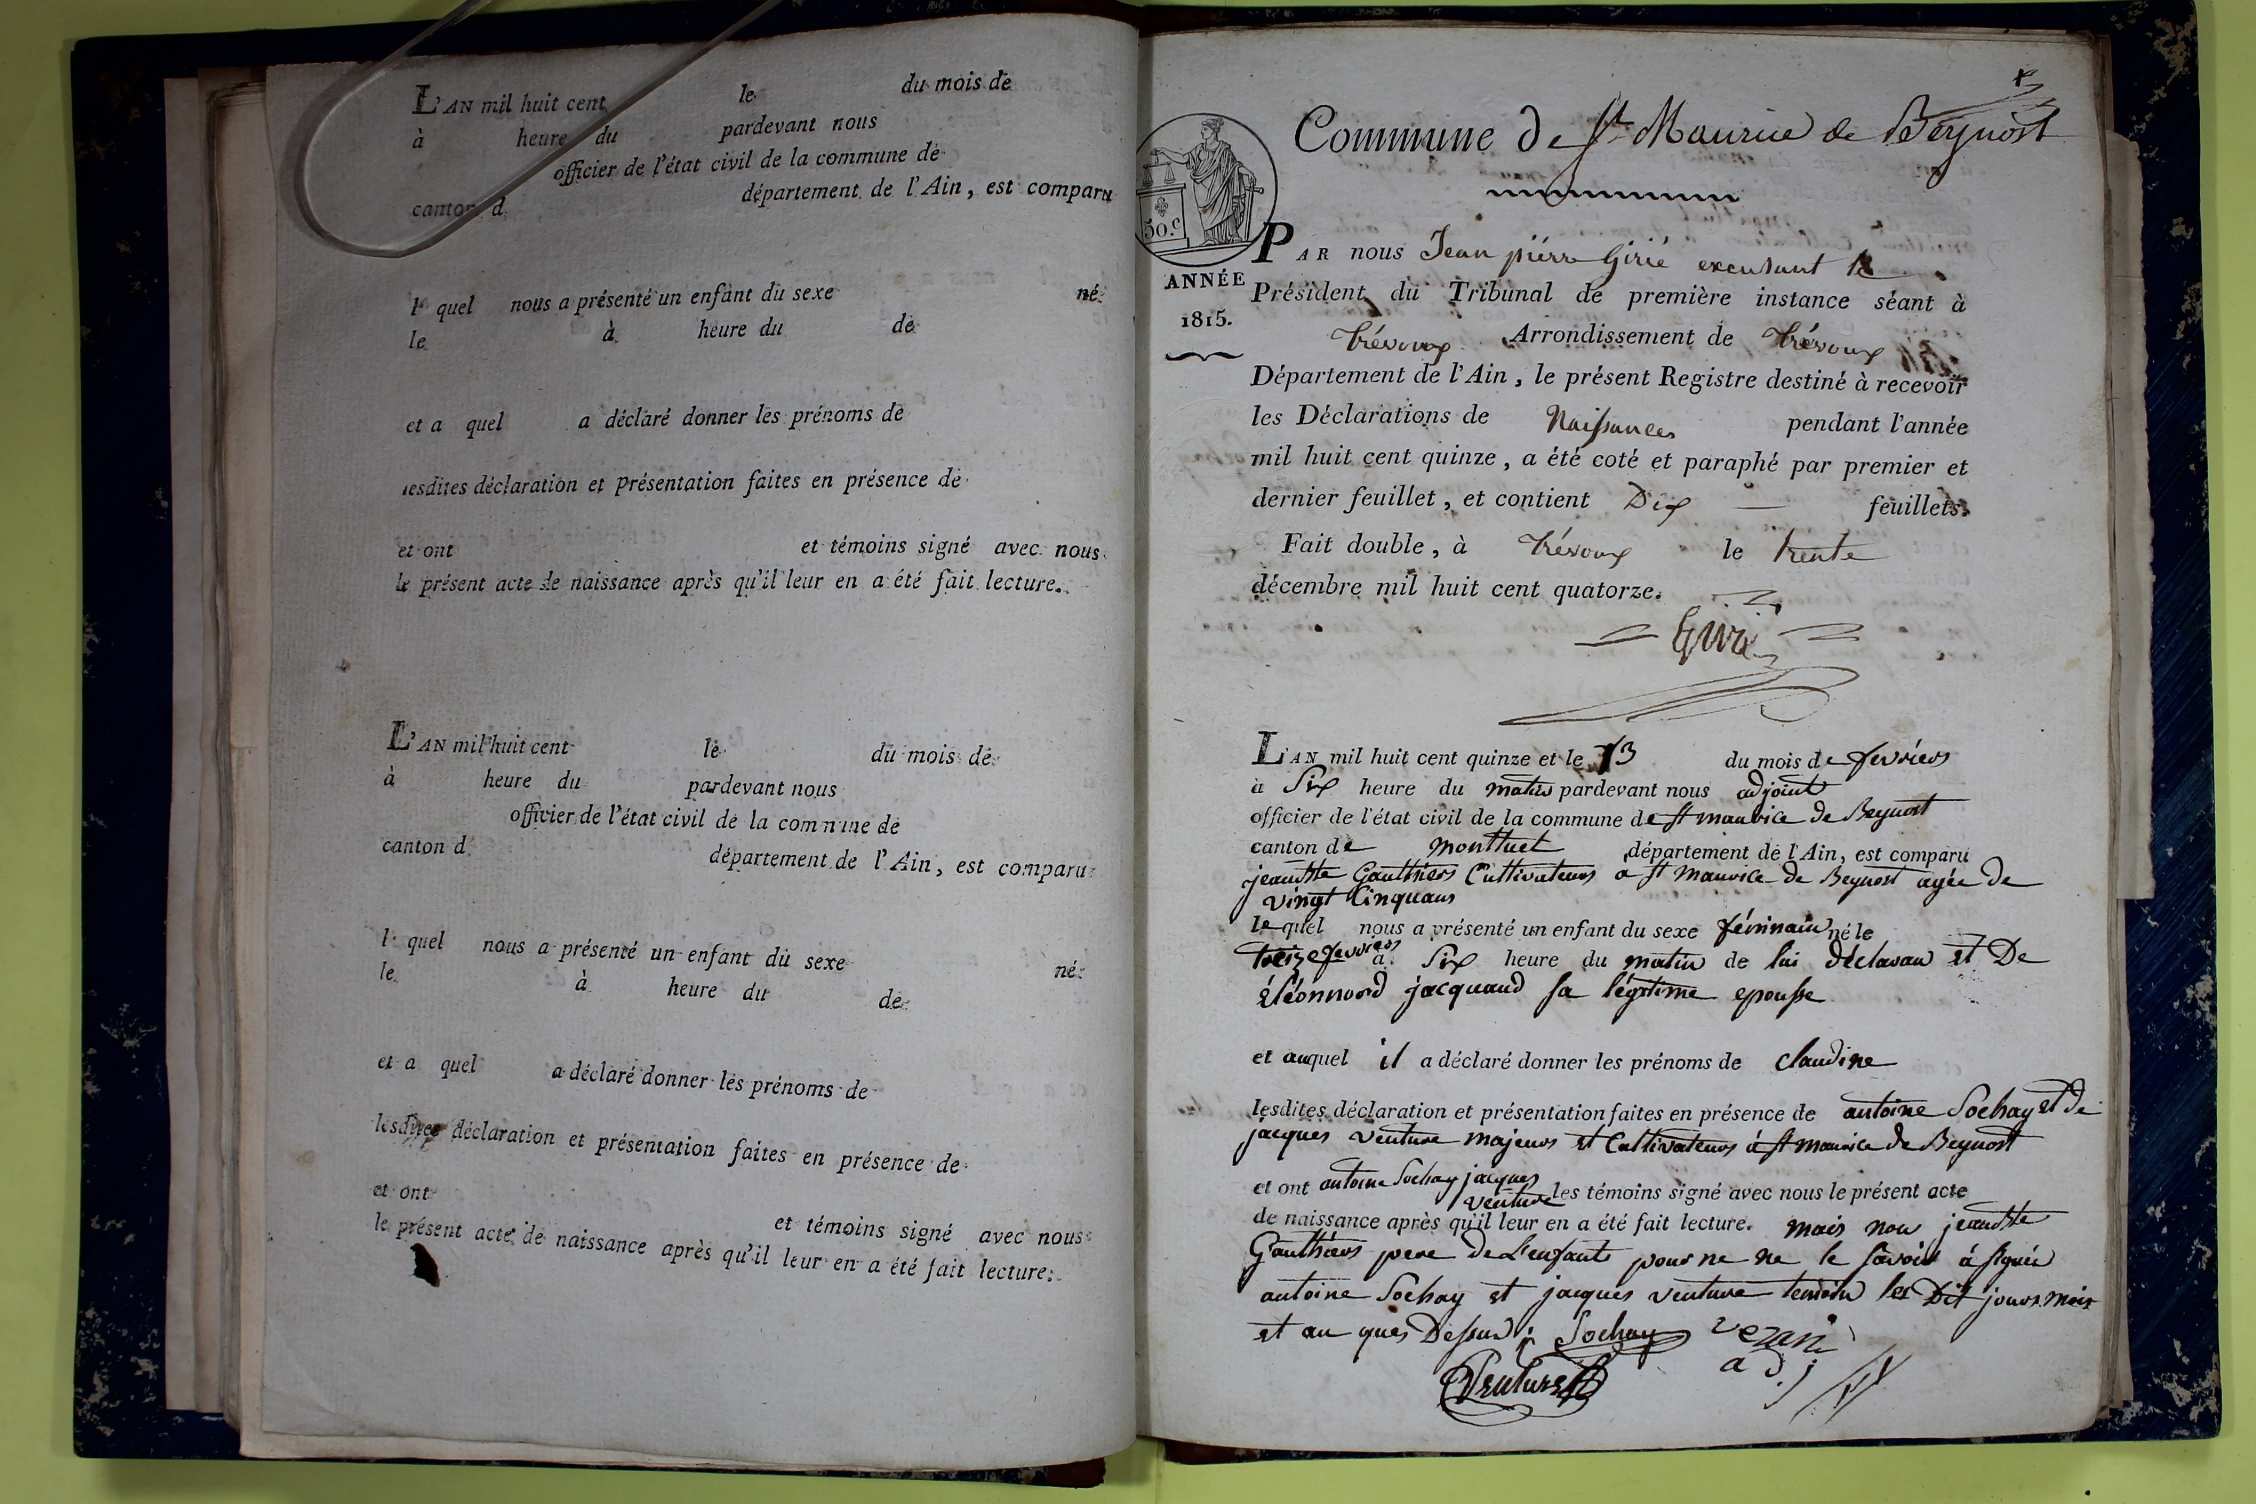 L'AN mil huit cent le du mois de
à heure du pardevant nous
officier de l'état civil de la commune de
canton d département de l'Ain, est comparu
l quel nous a présenté un enfant du sexe né
le à heure du de
et a quel a déclaré donner les prénoms de
lesdites déclaration et présentation faites en présence de
et ont et témoins signé avec nous
le présent acte de naissance après qu'il leur en a été fait lecture.
L'AN mil huit cent le du mois de
à heure du pardevant nous
officier de l'état civil de la commune de
canton d département de l'Ain, est comparu
l quel nous a présenté un enfant du sexe né
le à heure du de
et a quel a déclaré donner les prénoms de
lesdites déclaration et présentation faites en présence de
et ont et témoins signé avec nous
le présent acte de naissance après qu'il leur en a été fait lecture.
Commune de St Maurice de Beynost
50.c
ANNÉE
1815.
PAR nous Jean pierre Girié
Président du Tribunal de première instance séant à
Trévoux Arrondissement de Trévoux
Département de l'Ain, le présent Registre destiné à recevoir
les Déclarations de Naissances pendant l'année
mil huit cent quinze, a été coté et paraphé par premier et
dernier feuillet, et contient Dix feuillets.
Fait double, à Trévoux le trente
décembre mil huit cent quatorze.
Girié
L'AN mil huit cent quinze et le 13 du mois de fevriers
à Six heure du matin pardevant nous adjoint
officier de l'état civil de la commune de st maurice de Beynost
canton de montluet département de l'Ain, est comparu
jeanbte Gauthiers Cultivateurs a st maurice de Beynost agée de
vingt Cinquans
le quel nous a présenté un enfant du sexe féminain né le
treize fevriers à Six heure du matin de lui déclaran et De
Eléonnord jacquand sa légitime epousse
et auquel il a déclaré donner les prénoms de claudine
lesdites déclaration et présentation faites en présence de antoine Sochay et de
jacques venture majeurs et Cultivateurs à st maurice de Beynost
et ont antoine Sochay jacques venture les témoins signé avec nous le présent acte
de naissance après qu'il leur en a été fait lecture. mais non jeanbte
Gauthiers pere de L'enfant pour ne ne le savoir á signéé
antoine Sochay et jacques venture temoin les Dit jours mois
et an ques Dessus Sochay
adj
Venture